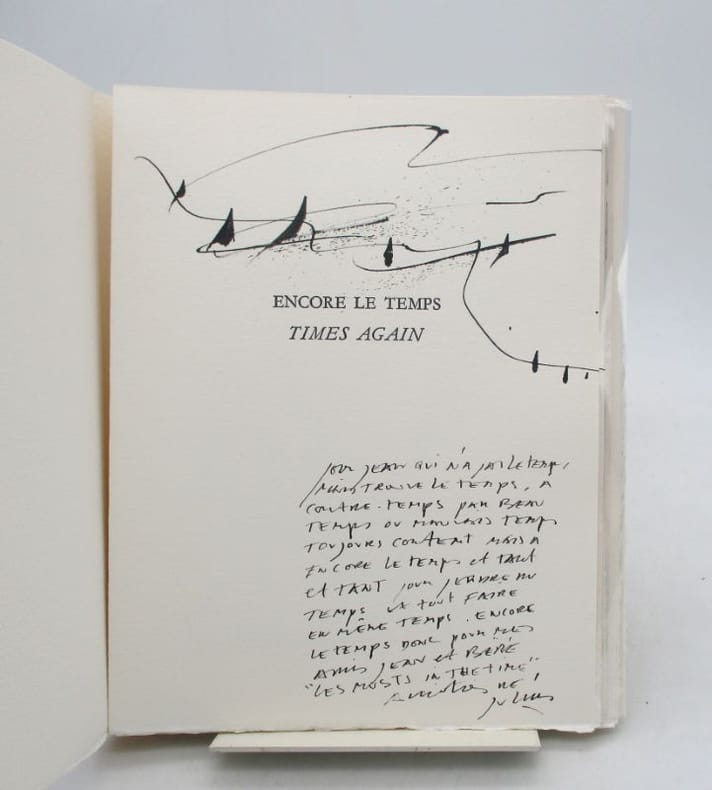 ENCORE LE TEMPS
TIMES AGAIN
POUR JEAN QUI N'A PAS LE TEMPS,
MAIS TROUVE LE TEMPS, A
CONTRE-TEMPS PAR BEAU
TEMPS OU MAUVAIS TEMPS
TOUJOURS CONTENT MAIS A
ENCORE LE TEMPS et TANT
et TANT POUR
TEMPS et tout FAIRE
EN MÊME TEMPS. ENCORE
LE TEMPS DONC POUR MES
AMIS JEAN et BÉBÉ
"LES MOSTS IN THE TIME"
Julius